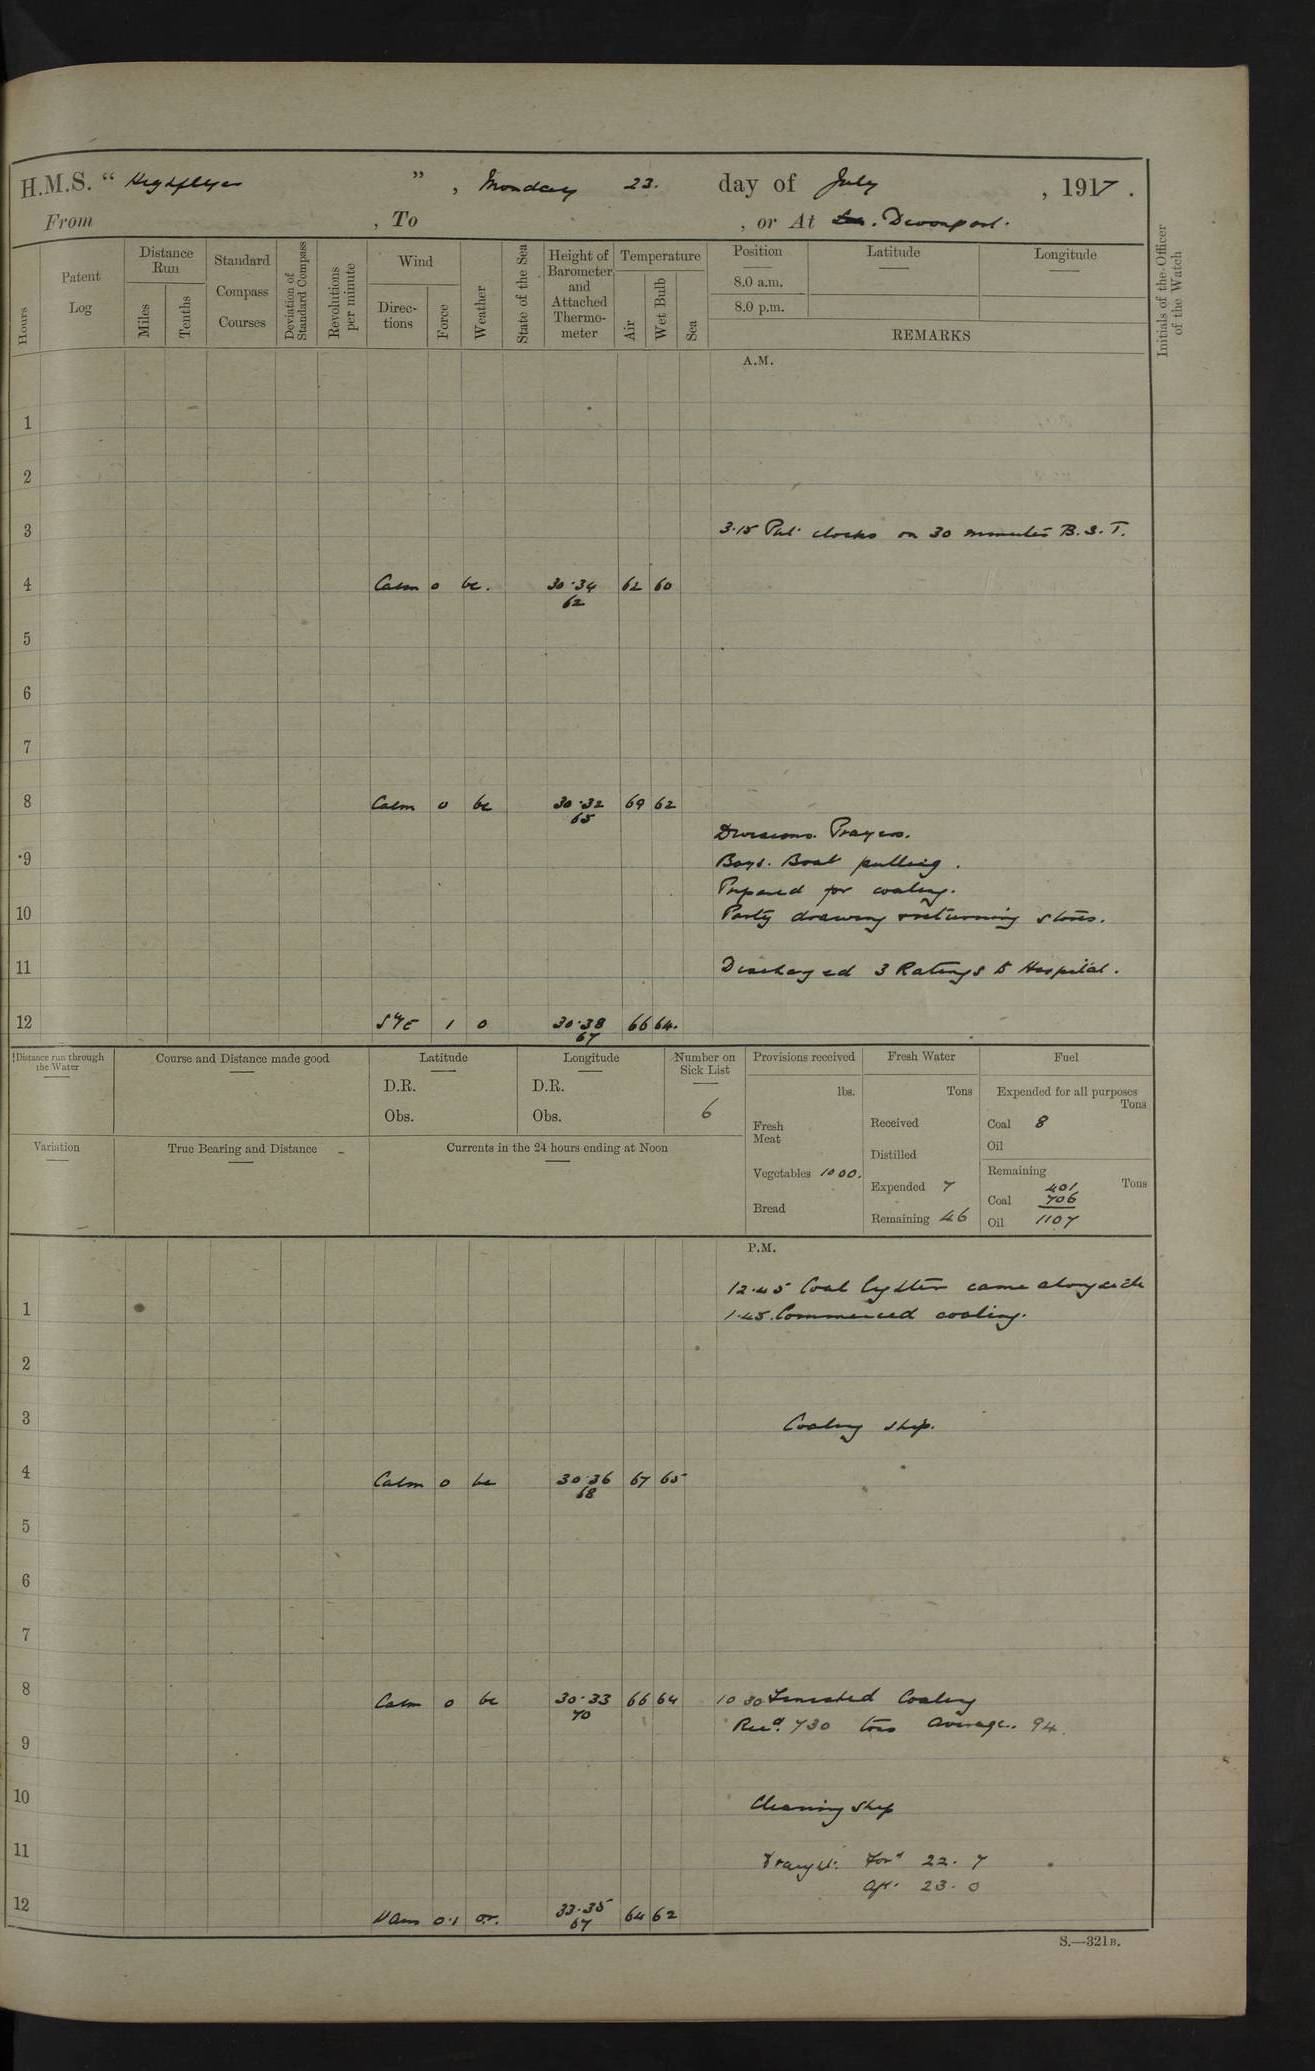 H.M.S. " Highflyer " , Monday 23. day of July , 1917 .
From , To , or At Devonport.
Hours
Patent Log
Distance Run
Miles
Tenths
Standard Compass Courses
Deviation of Standard Compass
Revolutions per minute
Wind
Direc- tions
Force
Weather
State of the Sea
Height of Barometer and Attached Thermo- meter
Temperature
Air
Wet Bulb
Sea
Position
8.0 a.m.
8.0 p.m.
Latitude
Longitude
REMARKS
Initials of the Officer of the Watch
A.M.
1
2
3 3.15 Put clocks on 30 minutes B.S.T.
4 Calm 0 bc. 30.34 62 60
62
5
6
7
8 Calm 0 bc 30.32 69 62
65
Divisions. Prayers.
9 Boys. Boat pulling.
Prepared for coaling.
10 Party drawing & returning stores.
11 Discharged 3 Ratings to Hospital.
12 1 0 30.38 66 64.
67
Distance run through the Water
Course and Distance made good
Latitude
D.R.
Obs.
Longitude
D.R.
Obs.
Number on Sick List
6
Variation
True Bearing and Distance
Currents in the 24 hours ending at Noon
Provisions received
lbs.
Fresh Meat
Vegetables 1000.
Bread
Fresh Water
Tons
Received
Distilled
Expended 7
Remaining 46
Fuel
Expended for all purposes
Tons
Coal 8
Oil
Remaining
Tons
401
Coal 706
Oil 1107
P.M.
12.45 Coal Lighter came alongside
1 1.45. Commenced coaling.
2
3 Coaling ship.
4 Calm 0 bc 30.36 67 65
68
5
6
7
8 Calm 0 bc 30.33 66 64 10 30 Finished Coaling
70
Recd. 730 tons average. 94.
9
10 Cleaning ship
11 Draught. Ford 22. 7
Aft. 23. 0
12 0.1 or. 33.35 64 62
67
S.—321B.